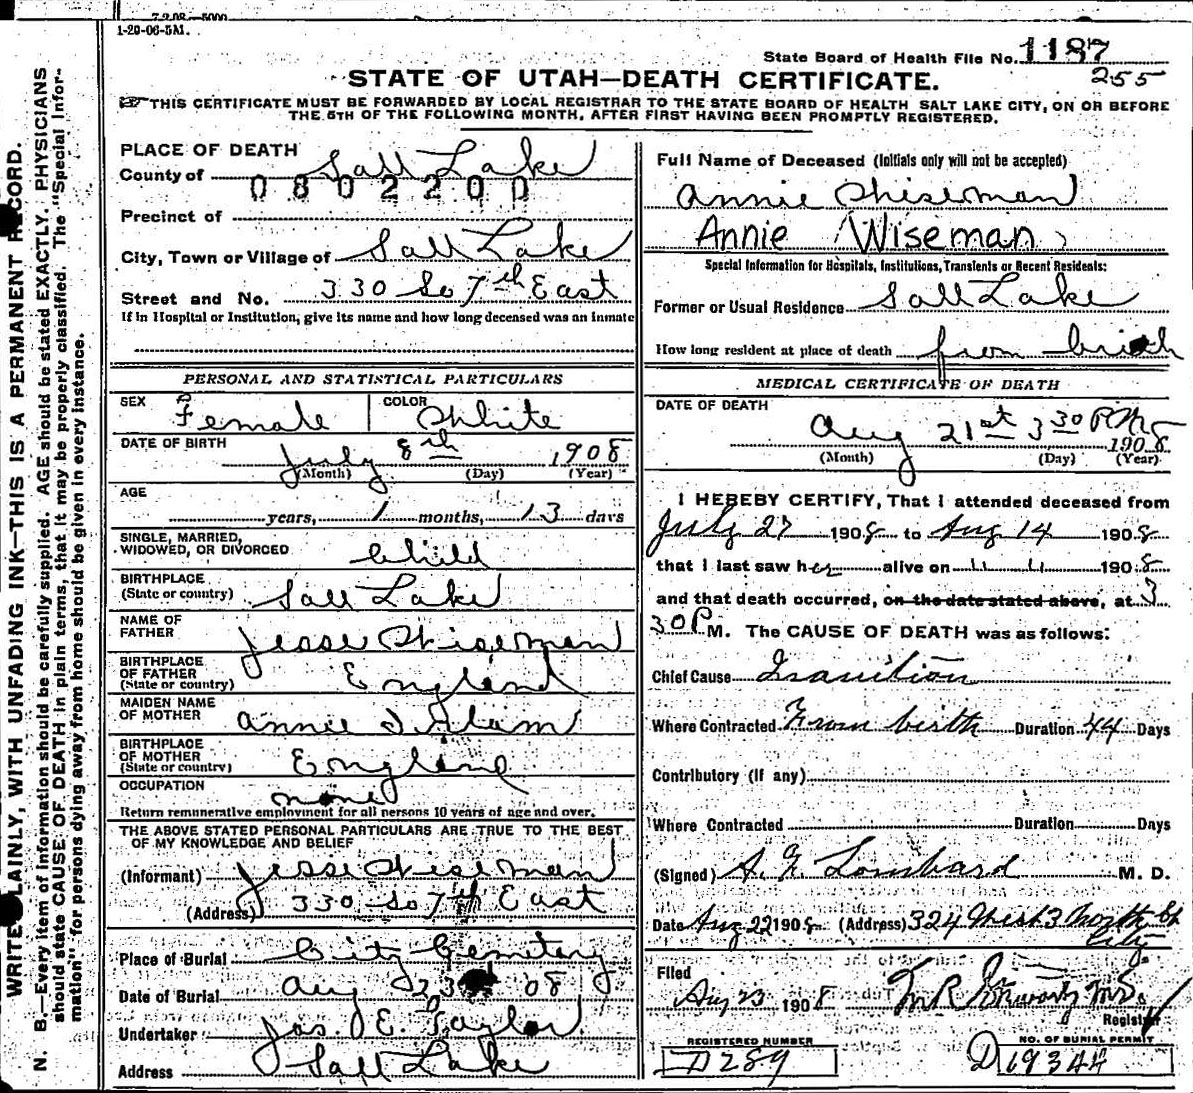 7-2-08-5000
1-20-06-5M.
State Board of Health File No. 1187
255
STATE OF UTAH—DEATH CERTIFICATE.
THIS CERTIFICATE MUST BE FORWARDED BY LOCAL REGISTRAR TO THE STATE BOARD OF HEALTH SALT LAKE CITY, ON OR BEFORE
THE 5TH OF THE FOLLOWING MONTH, AFTER FIRST HAVING BEEN PROMPTLY REGISTERED.
WRITE PLAINLY, WITH UNFADING INK—THIS IS A PERMANENT RECORD.
N. B.—Every item of information should be carefully supplied. AGE should be stated EXACTLY. PHYSICIANS
should state CAUSE OF DEATH in plain terms, that it may be properly classified. The "Special Infor-
mation" for persons dying away from home should be given in every instance.
PLACE OF DEATH
County of Salt Lake
0802200
Precinct of
City, Town or Village of Salt Lake
Street and No. 330 So 7th East
If in Hospital or Institution, give its name and how long deceased was an inmate
PERSONAL AND STATISTICAL PARTICULARS
SEX Female COLOR White
DATE OF BIRTH July 8th 1908
(Month) (Day) (Year)
AGE
years, 1 months, 13 days
SINGLE, MARRIED,
WIDOWED, OR DIVORCED Child
BIRTHPLACE
(State or country) Salt Lake
NAME OF
FATHER Jesse Wiseman
BIRTHPLACE
OF FATHER
(State or country) England
MAIDEN NAME
OF MOTHER Annie
BIRTHPLACE
OF MOTHER
(State or country) England
OCCUPATION none
Return remunerative employment for all persons 10 years of age and over.
THE ABOVE STATED PERSONAL PARTICULARS ARE TRUE TO THE BEST
OF MY KNOWLEDGE AND BELIEF
(Informant) Jesse Wiseman
(Address) 330 So 7th East
Place of Burial City Cemetery
Date of Burial Aug 23 08
Undertaker Jos. E. Taylor
Address Salt Lake
Full Name of Deceased (Initials only will not be accepted)
Annie Wiseman
Annie Wiseman
Special Information for Hospitals, Institutions, Transients or Recent Residents:
Former or Usual Residence Salt Lake
How long resident at place of death from birth
MEDICAL CERTIFICATE OF DEATH
DATE OF DEATH
Aug 21st 3 30 PM 1908
(Month) (Day) (Year)
I HEREBY CERTIFY, That I attended deceased from
July 27 1908 to Aug 14 1908
that I last saw her alive on " " 1908
and that death occurred, on the date stated above, at 3
30 P M. The CAUSE OF DEATH was as follows:
Chief Cause Inanition
Where Contracted From birth Duration 44 Days
Contributory (If any)
Where Contracted Duration Days
(Signed) Lombard M. D.
Date Aug 22 1908 (Address) 324 West 3 North St
City
Filed
Aug 23 1908 M R Stewart MD.
Registrar
REGISTERED NUMBER
D289
NO. OF BURIAL PERMIT
D19344